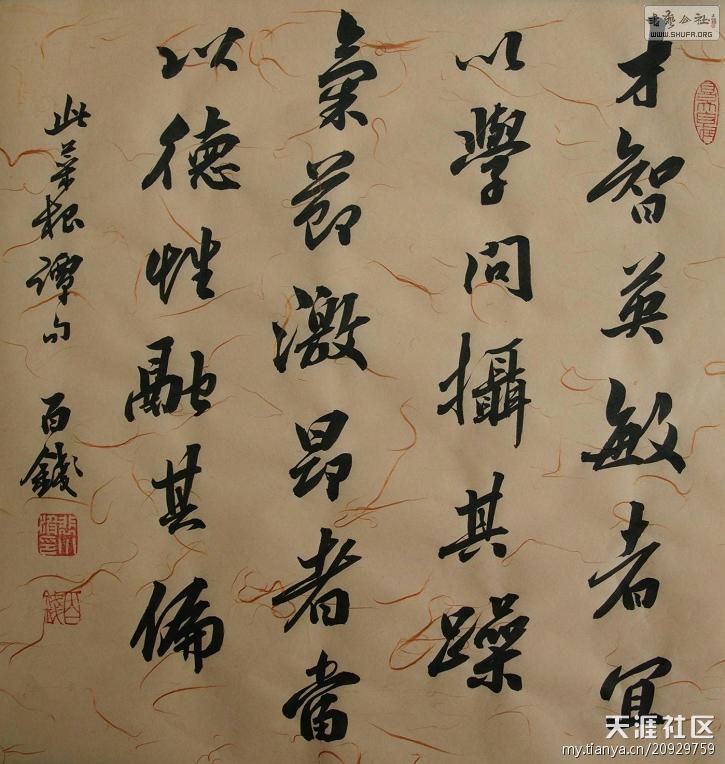 才智英敏者宜
以學問攝其躁
氣節激昂者當
以德性融其偏
此菜根譚句 百錢
WWW.SHUFA.ORG
天涯社区
my.tianya.cn/20929759